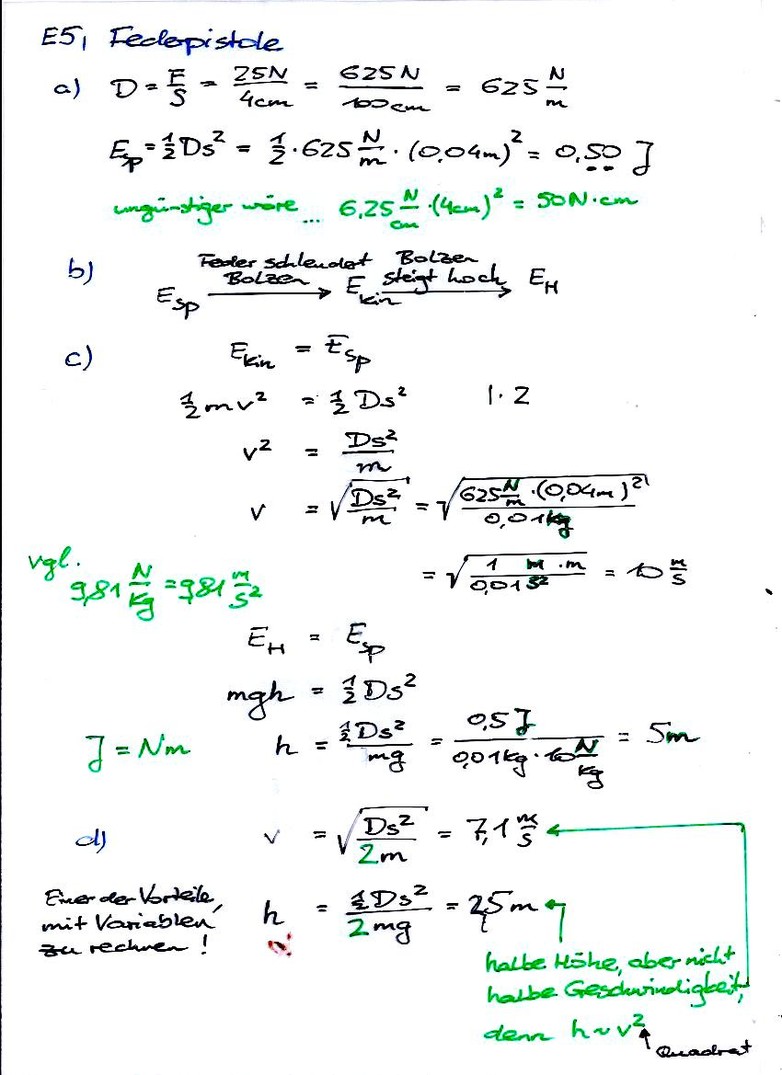 E5, Federpistole
a) D = F/s = 25N/4cm = 625N/100cm = 625 N/m
E_Sp = 1/2 Ds² = 1/2 · 625 N/m · (0,04m)² = 0,50 J
ungünstiger wäre ... 6,25 N/cm · (4cm)² = 50N·cm
b) E_Sp Feder schleudert Bolzen → E_kin Bolzen steigt hoch → E_H
c) E_kin = E_Sp
1/2 mv² = 1/2 Ds² | · 2
v² = Ds²/m
v = √(Ds²/m) = √(625 N/m · (0,04m)²/0,01kg)
= √(1 m · m/0,01 s²) = 10 m/s
vgl.
9,81 N/kg = 9,81 m/s²
E_H = E_Sp
mgh = 1/2 Ds²
J = Nm
h = 1/2 Ds²/mg = 0,5 J/0,01kg · 10 N/kg = 5m
d) v = √(Ds²/2m) = 7,1 m/s
Einer der Vorteile,
mit Variablen
zu rechnen !
h = 1/2 Ds²/2mg = 2,5m
halbe Höhe, aber nicht
halbe Geschwindigkeit,
denn h ~ v²
Quadrat